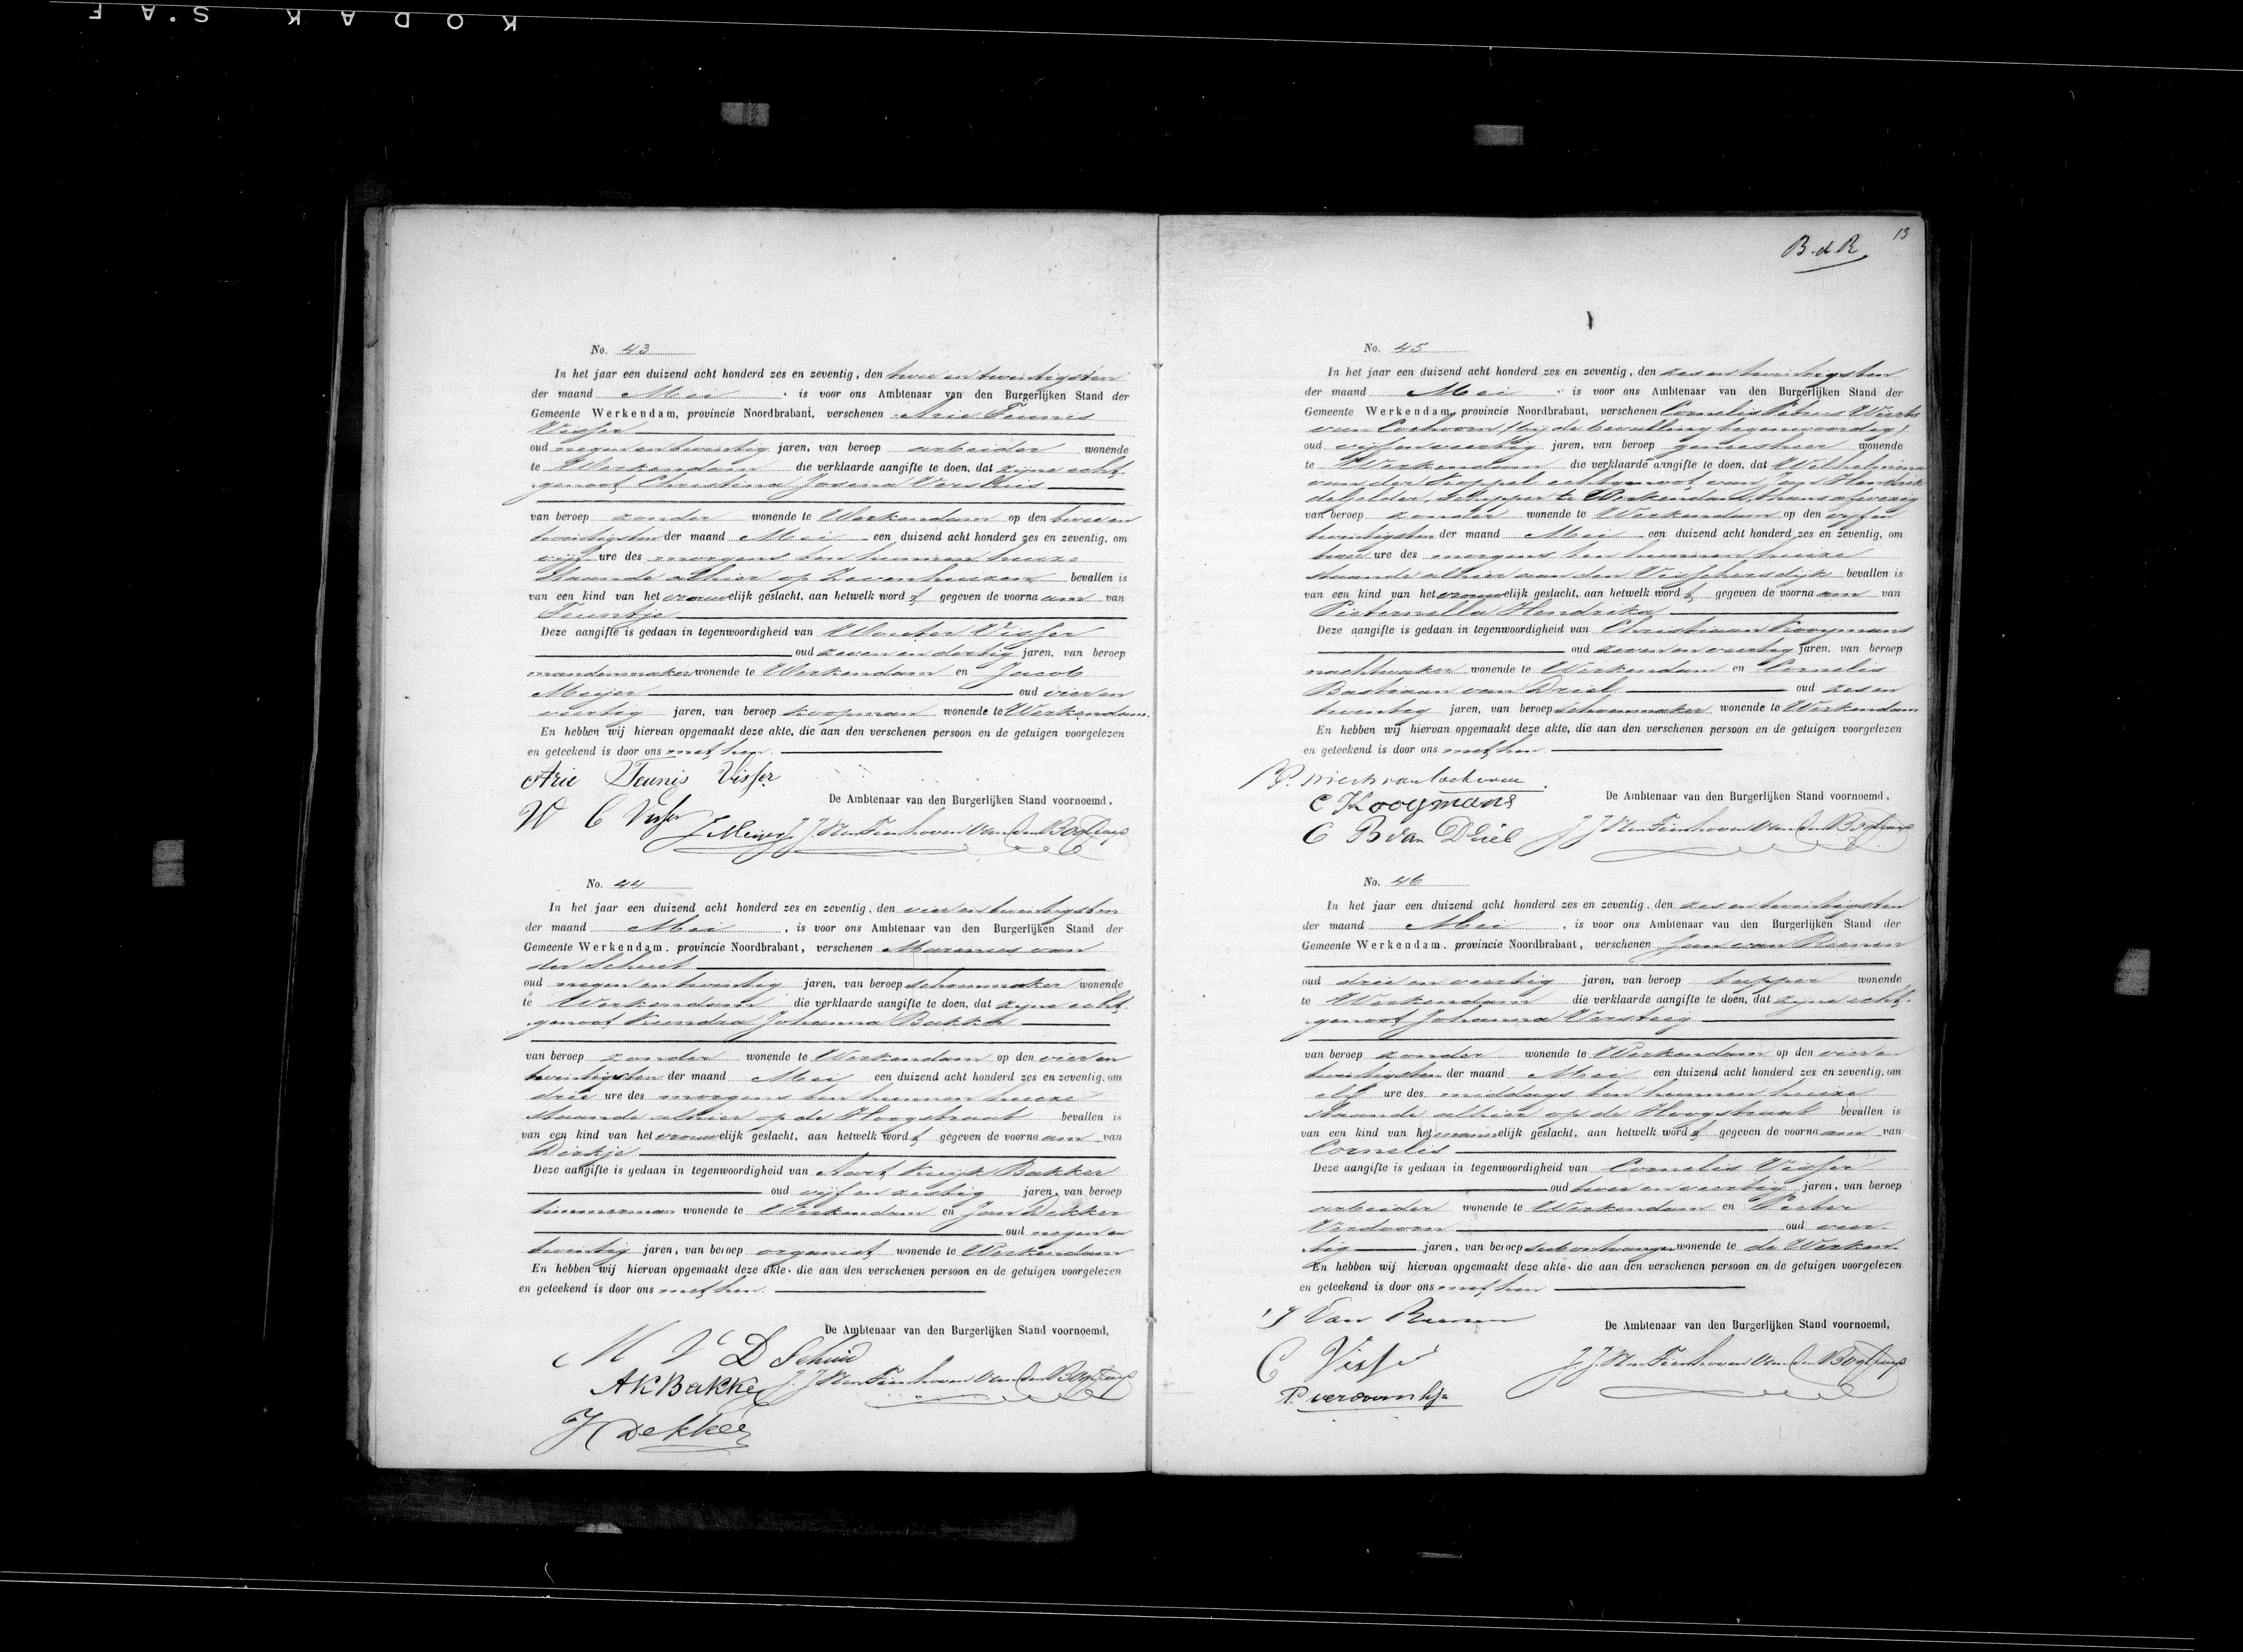 KODAK S.A F
No. 43
In het jaar een duizend acht honderd zes en zeventig, den twee en twintigsten
der maand Mei is voor ons Ambtenaar van den Burgerlijken Stand der
Gemeente Werkendam, provincie Noordbrabant, verschenen Arie Teunis
Visser
oud negen en twintig jaren, van beroep arbeider wonende
te Werkendam die verklaarde aangifte te doen, dat zijne echt-
genoot Christina Josena Versluis
van beroep zonder wonende te Werkendam op den twee en
twintigsten der maand Mei een duizend acht honderd zes en zeventig, om
vijf ure des morgens ten hunnen huize
staande alhier op Zevenhuizen bevallen is
van een kind van het vrouwelijk geslacht, aan hetwelk wordt gegeven de voornaam van
Teuntje
Deze aangifte is gedaan in tegenwoordigheid van Wouter Visser
oud zeven en dertig jaren, van beroep
mandenmaker wonende te Werkendam en Jacob
Meijer oud vier en
veertig jaren, van beroep koopman wonende te Werkendam.
En hebben wij hiervan opgemaakt deze akte, die aan den verschenen persoon en de getuigen voorgelezen
en geteekend is door ons met hen.
Arie Teunis Visser
De Ambtenaar van den Burgerlijken Stand voornoemd,
W C Visser J Meijer
No. 44
In het jaar een duizend acht honderd zes en zeventig, den vier en twintigsten
der maand Mei, is voor ons Ambtenaar van den Burgerlijken Stand der
Gemeente Werkendam, provincie Noordbrabant, verschenen Marinus van
der Schuit
oud negen en twintig jaren, van beroep schoenmaker wonende
te Werkendam die verklaarde aangifte te doen, dat zijne echt-
genoot Johanna Bakker
van beroep zonder wonende te Werkendam op den vier en
twintigsten der maand Mei een duizend acht honderd zes en zeventig, om
drie ure des morgens ten hunnen huize
staande alhier op de Hoogstraat bevallen is
van een kind van het vrouwelijk geslacht, aan hetwelk wordt gegeven de voornaam van
Dirkje
Deze aangifte is gedaan in tegenwoordigheid van Aart Kuijk Bakker
oud vijf en zestig jaren, van beroep
timmerman wonende te Werkendam en Jan Dekker
oud negen en
twintig jaren, van beroep organist wonende te Werkendam
En hebben wij hiervan opgemaakt deze akte, die aan den verschenen persoon en de getuigen voorgelezen
en geteekend is door ons met hen.
De Ambtenaar van den Burgerlijken Stand voornoemd,
M V D Schuit
A K Bakker
J Dekker
13
B.d.R
No. 45
In het jaar een duizend acht honderd zes en zeventig, den zes en twintigsten
der maand Mei is voor ons Ambtenaar van den Burgerlijken Stand der
Gemeente Werkendam, provincie Noordbrabant, verschenen Cornelis Petrus Wierts
van Coehoorn, bij de bevalling tegenwoordig,
oud vijf en veertig jaren, van beroep geneesheer wonende
te Werkendam die verklaarde aangifte te doen, dat Wilhelmina
van der Koppel echtgenoot van Jan Hendrik
de Gelder, schipper te Werkendam, thans afwezig
van beroep zonder wonende te Werkendam op den vijf en
twintigsten der maand Mei een duizend acht honderd zes en zeventig, om
twee ure des morgens ten hunnen huize
staande alhier aan den Visschersdijk bevallen is
van een kind van het vrouwelijk geslacht, aan hetwelk wordt gegeven de voornaam van
Pieternella Hendrika
Deze aangifte is gedaan in tegenwoordigheid van Christiaan Kooymans
oud zeven en veertig jaren, van beroep
nachtwaker wonende te Werkendam en Cornelis
Bastiaan van Driel oud zes en
twintig jaren, van beroep schoenmaker wonende te Werkendam
En hebben wij hiervan opgemaakt deze akte, die aan den verschenen persoon en de getuigen voorgelezen
en geteekend is door ons met hen.
C Kooymans
De Ambtenaar van den Burgerlijken Stand voornoemd,
C B van Driel
No. 46
In het jaar een duizend acht honderd zes en zeventig, den zes en twintigsten
der maand Mei, is voor ons Ambtenaar van den Burgerlijken Stand der
Gemeente Werkendam, provincie Noordbrabant, verschenen Jan van Reenen
oud drie en veertig jaren, van beroep tapper wonende
te Werkendam die verklaarde aangifte te doen, dat zijne echt-
genoot Johanna Versteeg
van beroep zonder wonende te Werkendam op den vier en
twintigsten der maand Mei een duizend acht honderd zes en zeventig, om
elf ure des middags ten hunnen huize
staande alhier op de Hoogstraat bevallen is
van een kind van het mannelijk geslacht, aan hetwelk wordt gegeven de voornaam van
Cornelis
Deze aangifte is gedaan in tegenwoordigheid van Cornelis Visser
oud twee en veertig jaren, van beroep
arbeider wonende te Werkendam en Pieter
Verdoorn oud veer
tig jaren, van beroep wonende te de Werken.
En hebben wij hiervan opgemaakt deze akte, die aan den verschenen persoon en de getuigen voorgelezen
en geteekend is door ons met hen
J Van Reenen
De Ambtenaar van den Burgerlijken Stand voornoemd,
C Visser